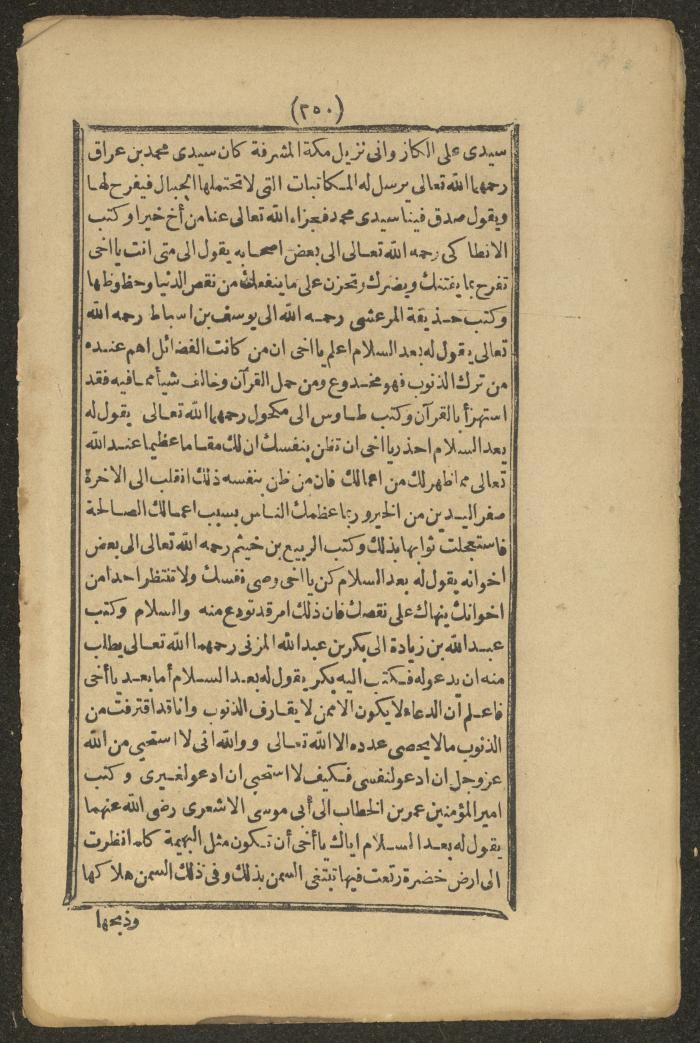 (٢٥٠)
سيدى على الكازوانى نزيل مكة المشرفة كان سيدى محمد بن عراق
رحمهما الله تعالى يرسل له المكاتبات التى لا تحتملها الجبال فيفرح لها
ويقول صدق فينا سيدى محمد فجزاء الله تعالى عنا من أخ خيرا وكتب
الانطاكى رحمه الله تعالى الى بعض اصحابه يقول الى متى انت يا اخى
تفرح بما يفتنك ويضرك وتحزن على ما ينفعك من نقص الدنيا وحظوظها
وكتب حذيقة المرعشى رحمه الله الى يوسف بن اسباط رحمه الله
تعالى يقول له بعد السلام اعلم يا اخى ان من كانت الفضائل اهم عنده
من ترك الذنوب فهو مخدوع ومن حمل القرآن وخالف شيأ مما فيه فقد
استهزأ بالقرآن وكتب طاوس الى مكحول رحمهما الله تعالى يقول له
بعد السلام احذر يا اخى ان تظن بنفسك ان لك مقاما عظيما عند الله
تعالى مما ظهر لك من اعمالك فان من ظن بنفسه ذلك انقلب الى الاخرة
صفر اليدين من الخير وربما عظمك الناس بسبب اعمالك الصالحة
فاستعجلت ثوابها بذلك وكتب الربيع بن خيثم رحمه الله تعالى الى بعض
اخوانه يقول له بعد السلام كن يا اخى وصى نفسك ولا تنتظر احدا من
اخوانك ينهاك على نقصك فان ذلك امر قد تودع منه والسلام وكتب
عبد الله بن زيادة الى بكر بن عبد الله المزنى رحمهما الله تعالى يطلب
منه ان يدعو له فكتب اليه بكر يقول له بعد السلام أما بعد يا أخى
فاعلم أن الدعاء لا يكون الا ممن لا يقارف الذنوب وانا قد اقترفت من
الذنوب ما لا يحصى عدده الا الله تعالى ووالله انى لا استحيى من الله
عز وجل ان ادعو لنفسى فكيف لا استحى ان ادعو لغيرى وكتب
امير المؤمنين عمر بن الخطاب الى أبى موسى الاشعرى رضى الله عنهما
يقول له بعد السلام اياك يا أخى أن تكون مثل البهيمة كلما نظرت
الى ارض خضرة رتعت فيها تبتغى السمن بذلك وفى ذلك السمن هلاكها
وذبحها